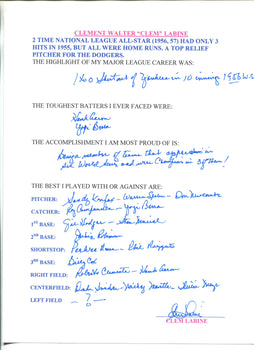 CLEMENT WALTER "CLEM" LABINE
2 TIME NATIONAL LEAGUE ALL-STAR (1956, 57) HAD ONLY 3
HITS IN 1955, BUT ALL WERE HOME RUNS. A TOP RELIEF
PITCHER FOR THE DODGERS.
THE HIGHLIGHT OF MY MAJOR LEAGUE CAREER WAS:
1 to 0 Shutout of Yankees in 10 inning 1956 W.S.
THE TOUGHEST BATTERS I EVER FACED WERE:
Hank Aaron
Yogi Berra
THE ACCOMPLISHMENT I AM MOST PROUD OF IS:
Being a member of teams that
World Series and were Champions in 3 of them!
THE BEST I PLAYED WITH OR AGAINST ARE:
PITCHER: Sandy Koufax - Warren Spahn - Don Newcombe
CATCHER: Roy Campanella - Yogi Berra
1st BASE: Gil Hodges - Stan Musial
2nd BASE: Jackie Robinson
SHORTSTOP: Pee Wee Reese - Phil Rizzuto
3rd BASE: Billy Cox
RIGHT FIELD: Roberto Clemente - Hank Aaron
CENTERFIELD: Duke Snider - Mickey Mantle - Willie Mays
LEFT FIELD - ? -
Clem Labine
CLEM LABINE